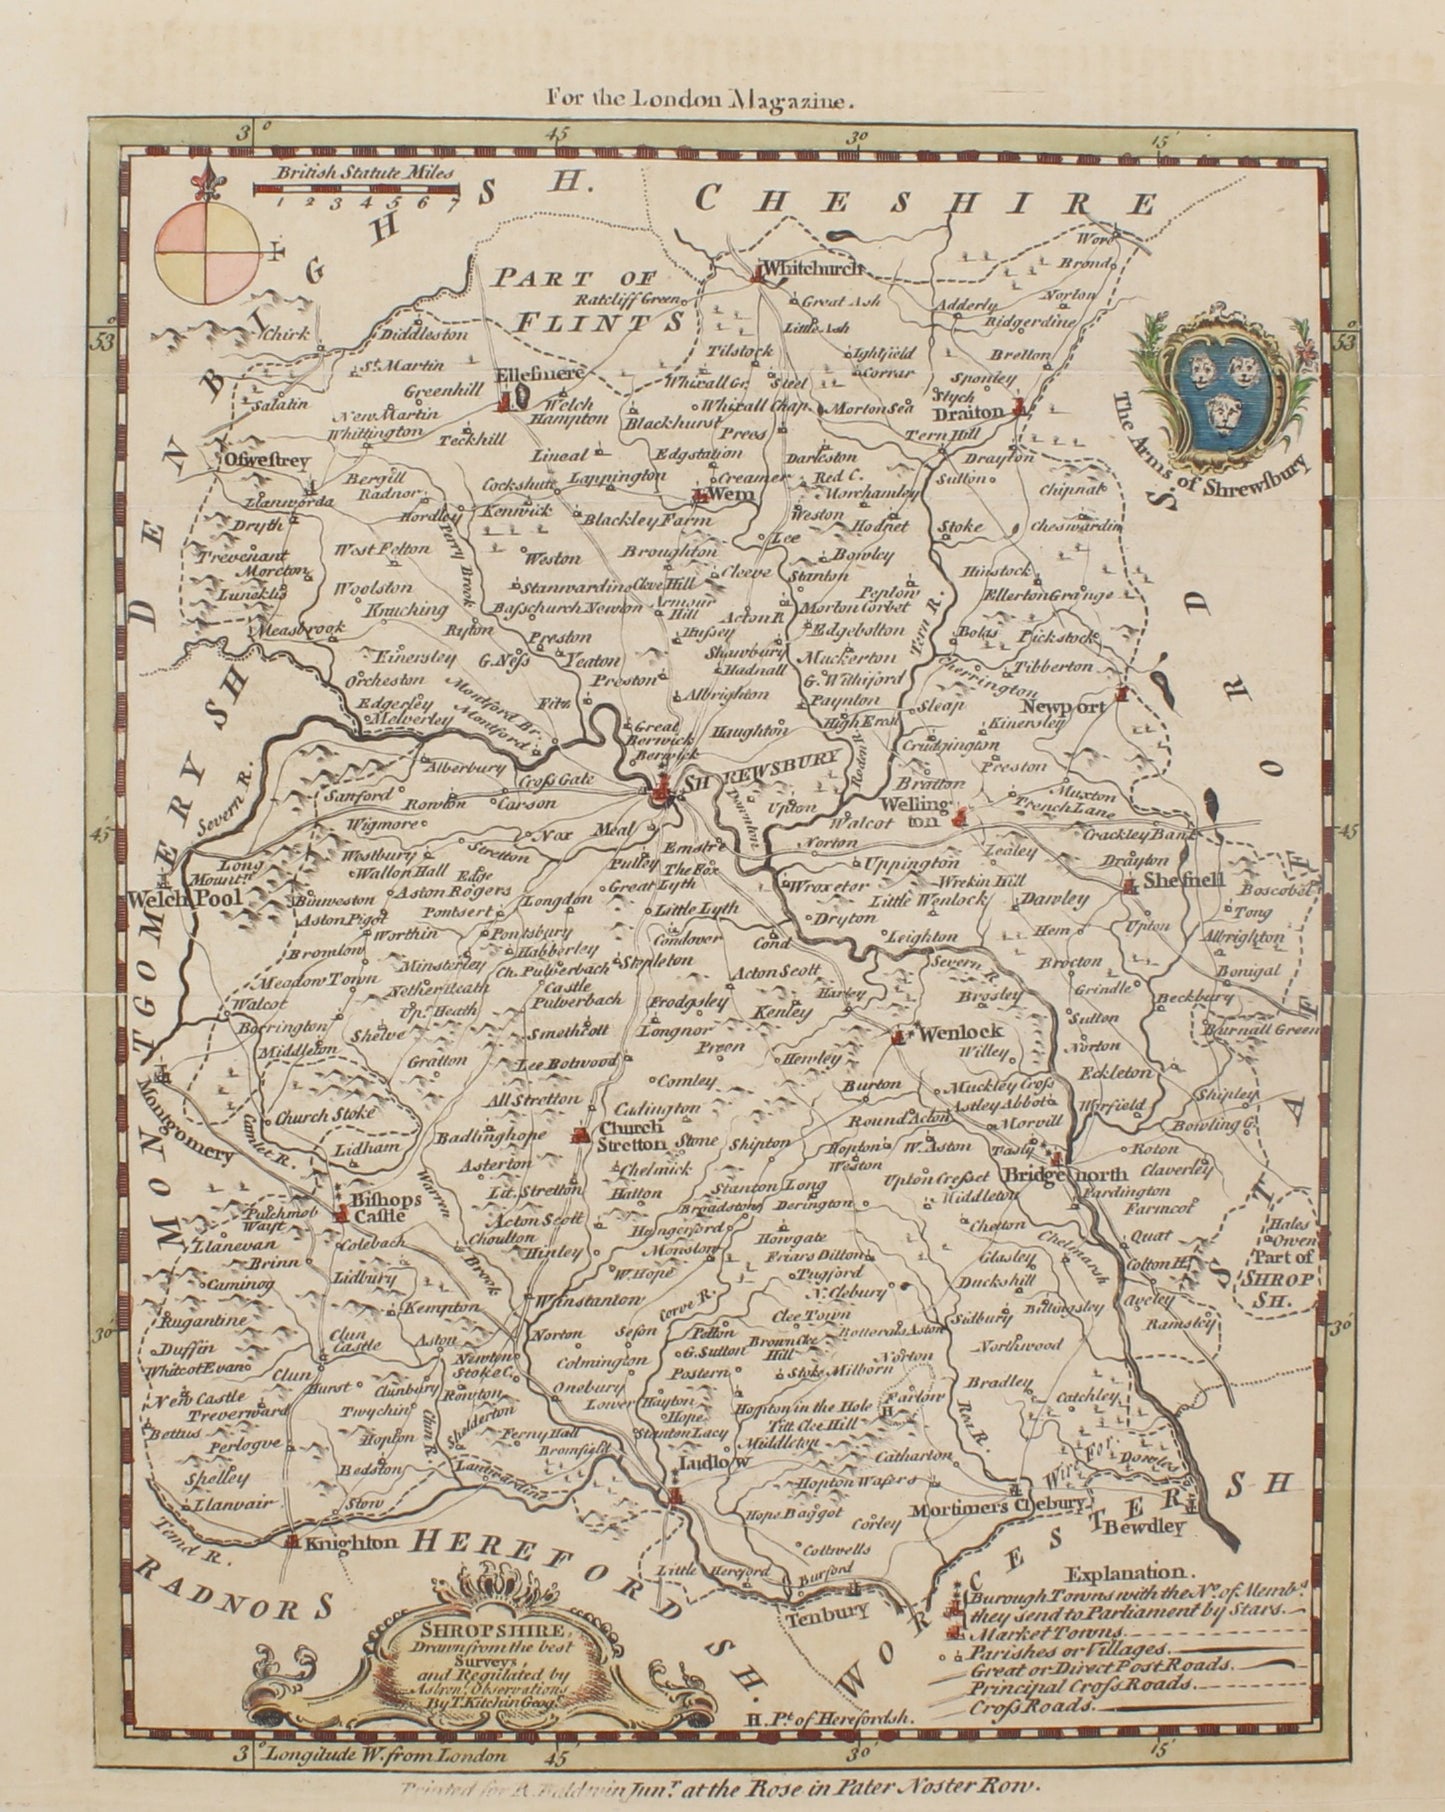 For the London Magazine.
3 °
45
30
15'
British Statute Miles
1 2 3 4 5 6 7
DENBIGHSH.
CHESHIRE
PART OF
FLINTS
Whitchurch
Ratcliff Green
Great Ash
Little Ash
Adderly
Norton
Ridgerdine
Chirk
Diddleston
St. Martin
Tilstock
Ightfield
Bretton
Corrar
Sponley
Ellesmere
Greenhill
Welch
Hampton
Whixall Gr.
Steel
Whixall Chap.
Morton Sea
Draiton
Salatin
New Martin
Whittington
Teckhill
Blackhurst
Prees
Tern Hill
Drayton
The Arms of Shrewsbury
53
53
Oswestrey
Lineal
Edgstation
Darleston
Bergill
Radnor
Cockshutt
Lappington
Creamer
Red C.
Sutton
Chipnat
Llanworda
Hordley
Kenwick
Wem
Morchamley
Dryth
Blackley Farm
Weston
Hodnet
Stoke
Cheswardin
Trevenant
Moreton
West Felton
Perry Brook
Weston
Broughton
Lee
Bowley
Woolston
Stanwardine
Cleve Hill
Cleeve
Stanton
Hinstock
Peplow
Ellerton Grange
Knuching
Basschurch
Newton
Armour
Hill
Acton R
Morton Corbet
Measbrook
Ryton
Preston
Hussey
Edgebolton
Tern R.
Bolas
Pickstock
Kinersley
G. Ness
Yeaton
Shawbury
Muckerton
Tibberton
Orcheston
Preston
Hadnall
G. Withiford
Cherrington
Edgerley
Melverley
Montford Br.
Montford
Fitz
Albrighton
Paynton
Sleap
Newport
Great
Berwick
Berwick
Haughton
High Ercal
Kinersley
Crudgington
Alberbury
Cross Gate
SHREWSBURY
Roden R.
Preston
Bratton
Severn R.
Sanford
Rowton
Carson
Upton
Welling-
ton
Muxton
Trench Lane
Wigmore
Nox
Meal
Walcot
Crackley Bank
45'
45
Westbury
Stretton
Emstre
Norton
Lealey
Drayton
Long
Mount
Wallop Hall
Edge
Pulley
The Fox
Uppington
Welch Pool
Binweston
Aston Rogers
Great Lyth
Wroxeter
Wrekin Hill
Shefnell
Boscobel
Aston Pigot
Pontsert
Longdon
Little Lyth
Little Wenlock
Dawley
Tong
Worthin
Pontsbury
Dryton
Upton
Albrighton
Bromlow
Minsterley
Habberley
Condover
Cond
Leighton
Hem
Ch. Pulverbach
Stepleton
Severn R.
Brocton
Bonigal
Meadow Town
Netherheath
Castle
Pulverbach
Acton Scott
Grindle
Beckbury
Walcot
Up. Heath
Frodgsley
Kenley
Harley
Brosley
Borrington
Shelve
Smethcott
Longnor
Wenlock
Sutton
Burnall Green
Middleton
Gratton
Lee Botwood
Preen
Hewley
Willey
Norton
Montgomery
Comley
Burton
Muckley Cross
Eckleton
Church Stoke
All Stretton
Cadington
Astley Abbot
Shipley
Camlet R.
Church
Stretton
Round Acton
Worfield
Bowling G.
Lidham
Badlinghope
Stone
Shipton
Hopton
W. Aston
Morvill
Tasly
Roton
Asterton
Chelmick
Weston
Bridgenorth
Claverley
Warren
Brook
Lit. Stretton
Hatton
Stanton Long
Upton Cresset
Pardington
Bishops
Castle
Broadstone
Derington
Middleton
Farmcot
Acton Scott
Hungerford
Cheton
Hales
Owen
Part of
SHROP
SH.
Llanevan
Colebach
Choulton
Hinley
Monston
Howgate
Chelmarsh
Quat
Brinn
Friars Ditton
Glasley
Colton H.
Caminog
Lidbury
W. Hope
Tugford
Duckshill
Aveley
Rugantine
Kempton
Winstanton
Corve R.
N. Clebury
Sidbury
Billingsley
Ramsley
Clee Town
30'
30
Clun
Castle
Aston
Norton
Peiton
Duffin
Newton
Stoke C.
Colmington
G. Sutton
Hill
Northwood
Whitcot Evan
Clun
Norton
Hurst
Clunbury
Rowton
Onebury
Postern
Stoke
Milborn
Bradley
New Castle
Treverward
Twychin
Shelderton
Lower Hayton
Hope
Hopton in the Hole
Farlow
Catchley
Bettus
Perlogve
Hopton
Ferny Hall
Stanton Lacy
Titt Clee Hill
H
Rea R.
Clun R.
Bromfield
Middleton
Shelley
Bedston
Ludlow
Catharton
Llanvair
Stow
Hopton Wafers
Mortimers Clebury
Bewdley
Knighton
Hope Baggot
Corley
Tend R.
Cottwells
Little Hereford
Burford
Tenbury
RADNORS
HEREFORDSH.
WORCESTERSH
STAFORDSH
MONTGOMERYSH
SHROPSHIRE,
Drawn from the best
Surveys,
and Regulated by
Astron. Observations
By T. Kitchin Geogr.
H. Pt. of Herefordsh.
Explanation.
Burough Towns with the No. of Membs.
they send to Parliament by Stars.
Market Towns.
Parishes or Villages.
Great or Direct Post Roads.
Principal Cross Roads.
Cross Roads.
3 ° Longitude W. from London
45'
30'
15'
Printed for R. Baldwin Junr. at the Rose in Pater Noster Row.